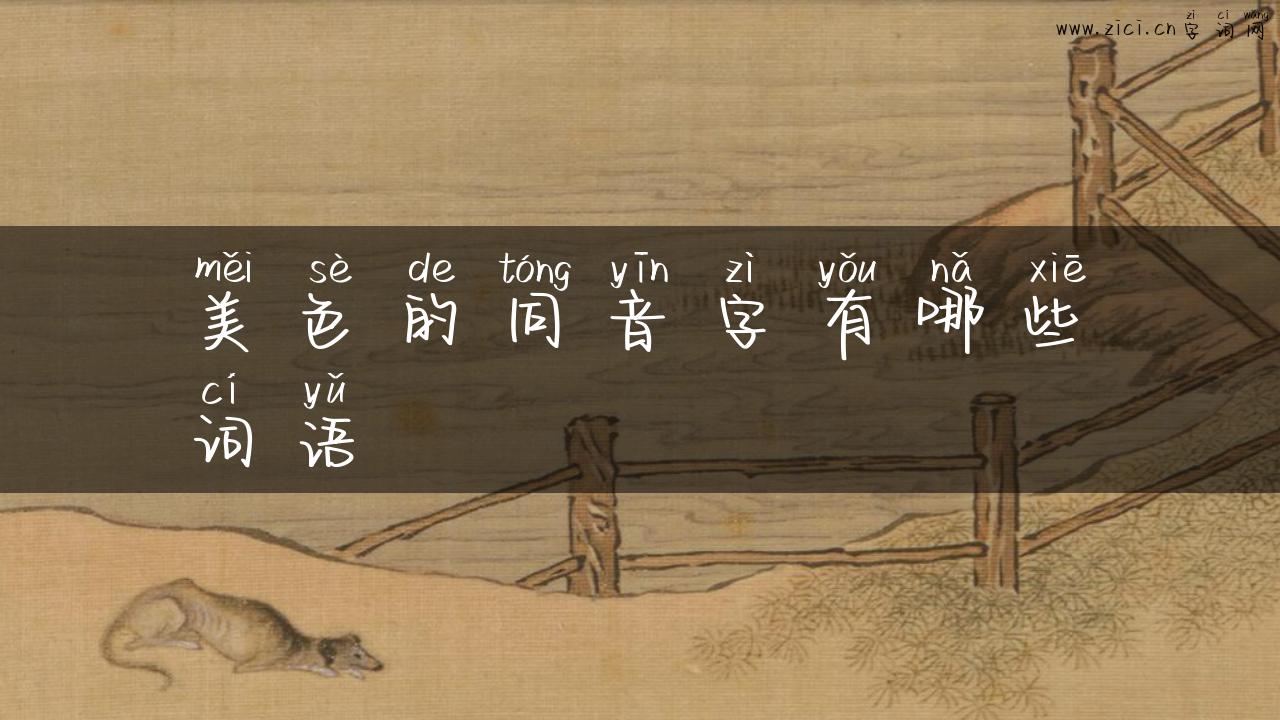 zì cí wǎng
www.zici.cn 字词网
měi sè de tóng yīn zì yǒu nǎ xiē
美色的同音字有哪些
cí yǔ
词语